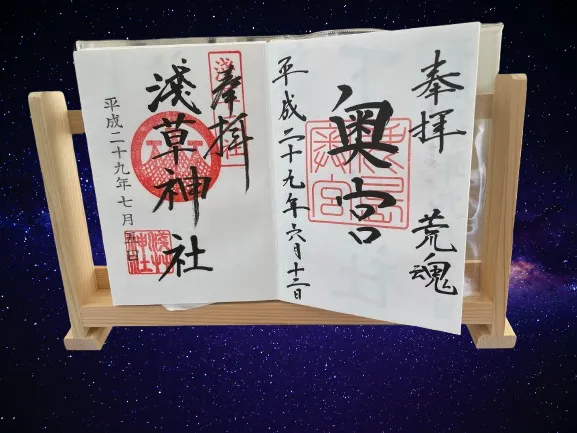 奉拝 荒魂
奥宮
平成二十九年六月十二日
奉拝
淺草神社
平成二十九年七月五日
淺草神社